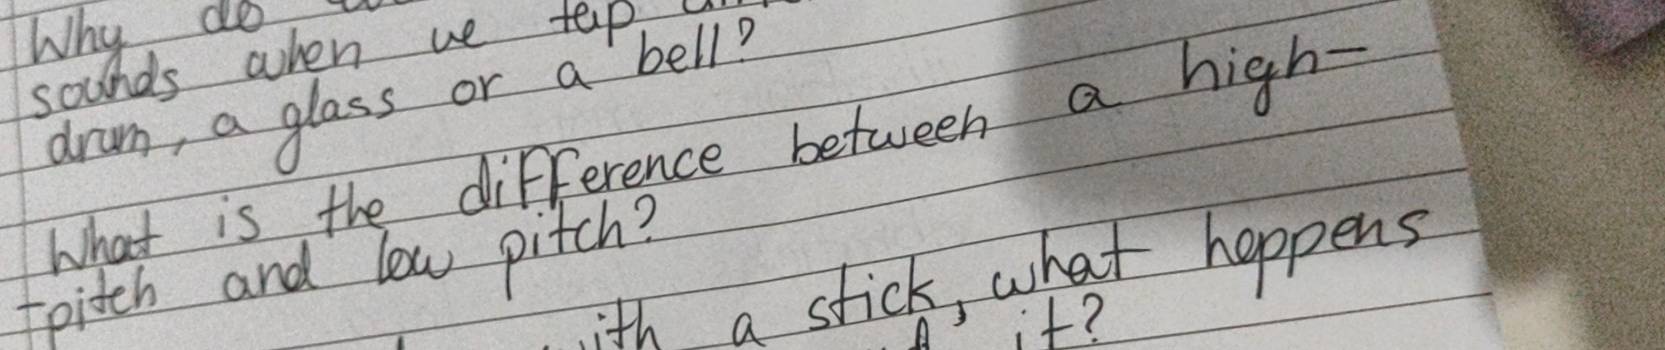 Why do
sounds when we tap
drum, a glass or a bell?
What is the difference between a high-
-pitch and low pitch?
with a stick, what happens
it?